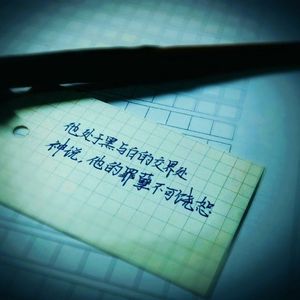 他处于黑与白的交界处
神说，他的罪孽不可饶恕